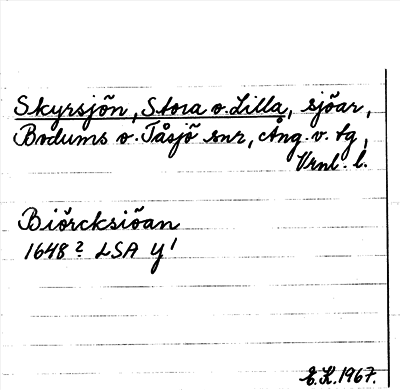 Skyrsjön, Stora o. Lilla, sjöar,
Bodums o. Tåsjö snr, Ång. v. tg,
Vrnl. l.
Biörcksiöan
1648? LSA Y¹
E.K. 1967.